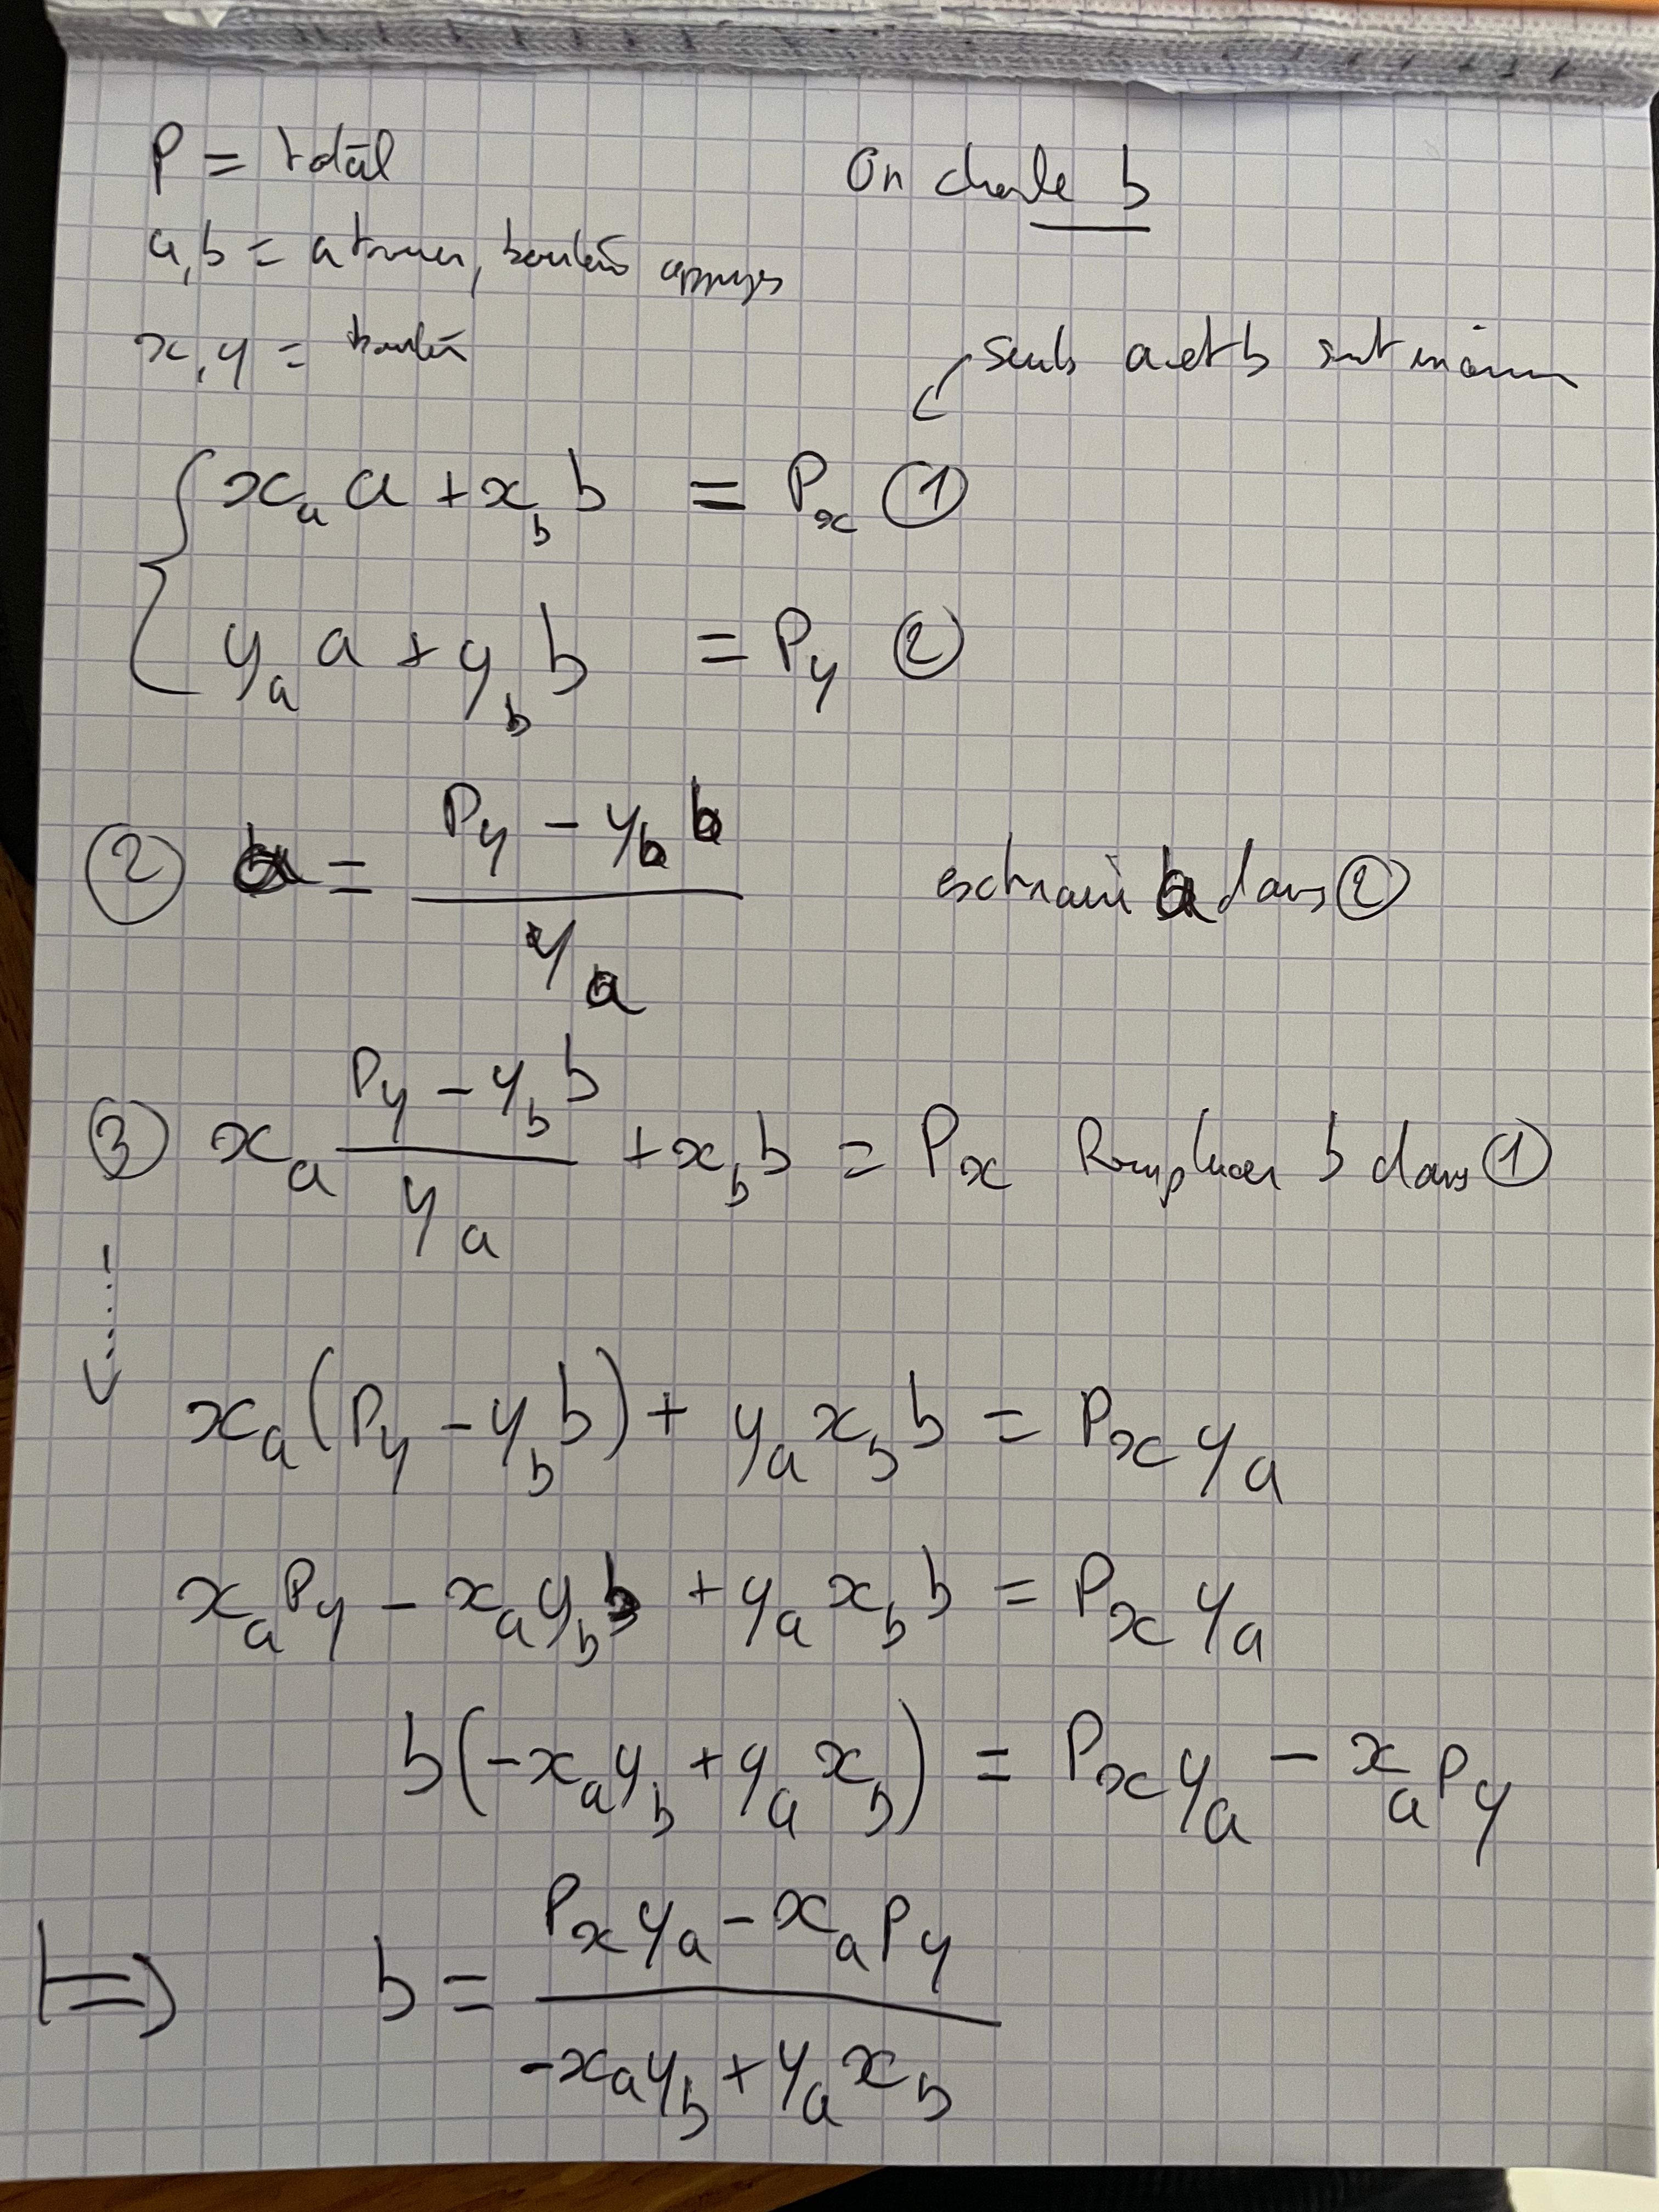 P = total
On cherche b
a, b = a trouver, boutons appuyés
x, y = bouton
seuls a et b sont inconnus
xₐ a + x_b b = Pₓ ①
yₐ a + y_b b = P_y ②
② a = (P_y - y_b b) / yₐ extraire a dans ②
③ xₐ (P_y - y_b b) / yₐ + x_b b = Pₓ Remplacer b dans ①
xₐ(P_y - y_b b) + yₐ x_b b = Pₓ yₐ
xₐ P_y - xₐ y_b b + yₐ x_b b = Pₓ yₐ
b(-xₐ y_b + yₐ x_b) = Pₓ yₐ - xₐ P_y
|=> b = (Pₓ yₐ - xₐ P_y) / (-xₐ y_b + yₐ x_b)